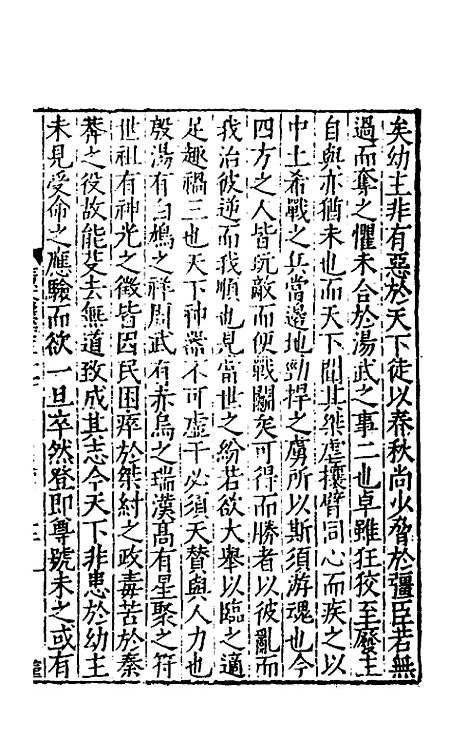 矣幼主非有惡於天下徒以春秋尚少脅於彊臣若無
過而奪之懼未合於湯武之事二也卓雖狂狡至廢主
自與亦猶未也而天下聞其桀虐攘臂同心而疾之以
中土希戰之兵當邊地勁悍之虜所以斯須游魂也今
四方之人皆玩敵而便戰鬭矣可得而勝者以彼亂而
我治彼逆而我順也見當世之紛若欲大舉以臨之適
足趣禍三也天下神器不可虛干必須天贊與人力也
殷湯有白鳩之祥周武有赤烏之瑞漢高有星聚之符
世祖有神光之徵皆因民困瘁於桀紂之政毒苦於秦
莽之役故能芟去無道致成其志今天下非患於幼主
未見受命之應驗而欲一旦卒然登即尊號未之或有